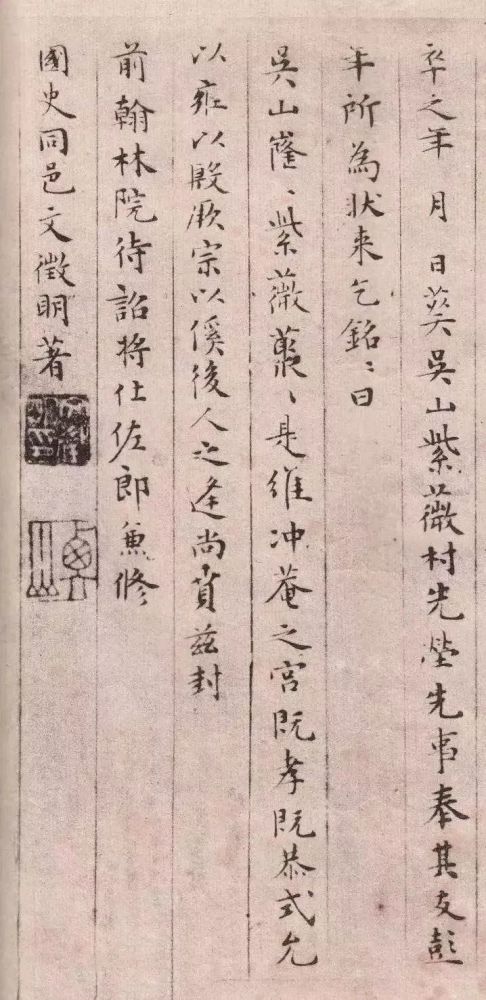 卒之年 月 日葬吳山紫薇村先塋先事奉其友彭
年所為狀来乞銘〻曰
吳山窿〻紫薇叢〻是維冲菴之宮既孝既恭式允
以雍以殿厥宗以俟後人之逢尚賁茲封
前翰林院待詔将仕佐郎兼修
國史同邑文徵明著